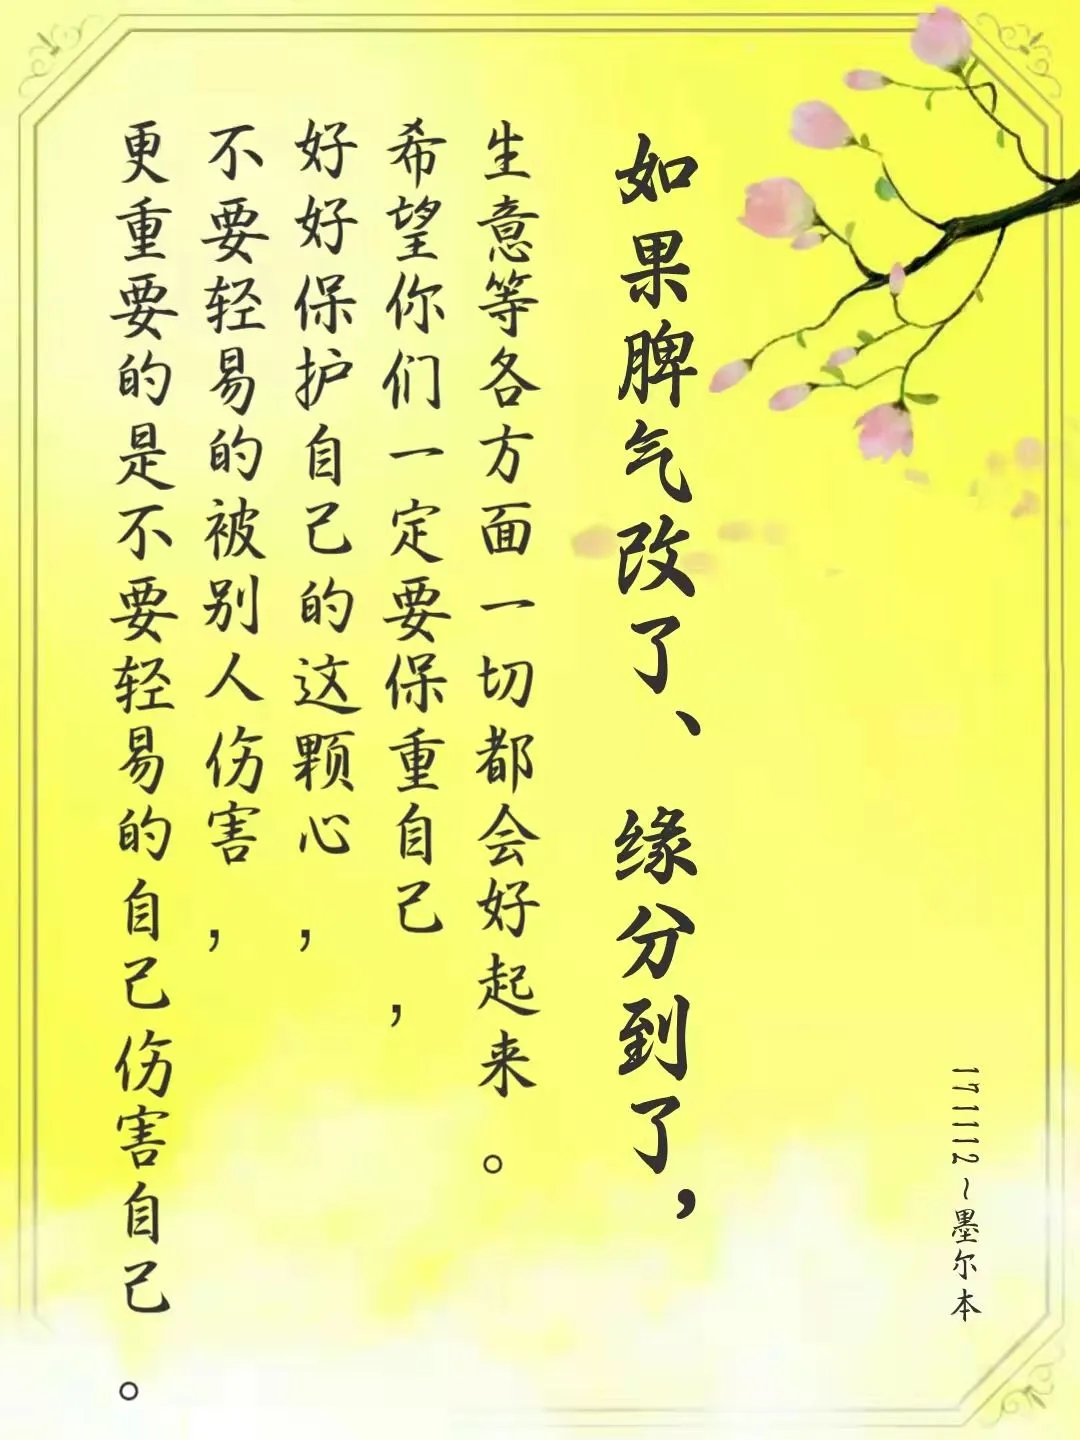 如果脾气改了、缘分到了，
生意等各方面一切都会好起来。
希望你们一定要保重自己，
好好保护自己的这颗心，
不要轻易的被别人伤害，
更重要的是不要轻易的自己伤害自己。
171112~墨尔本